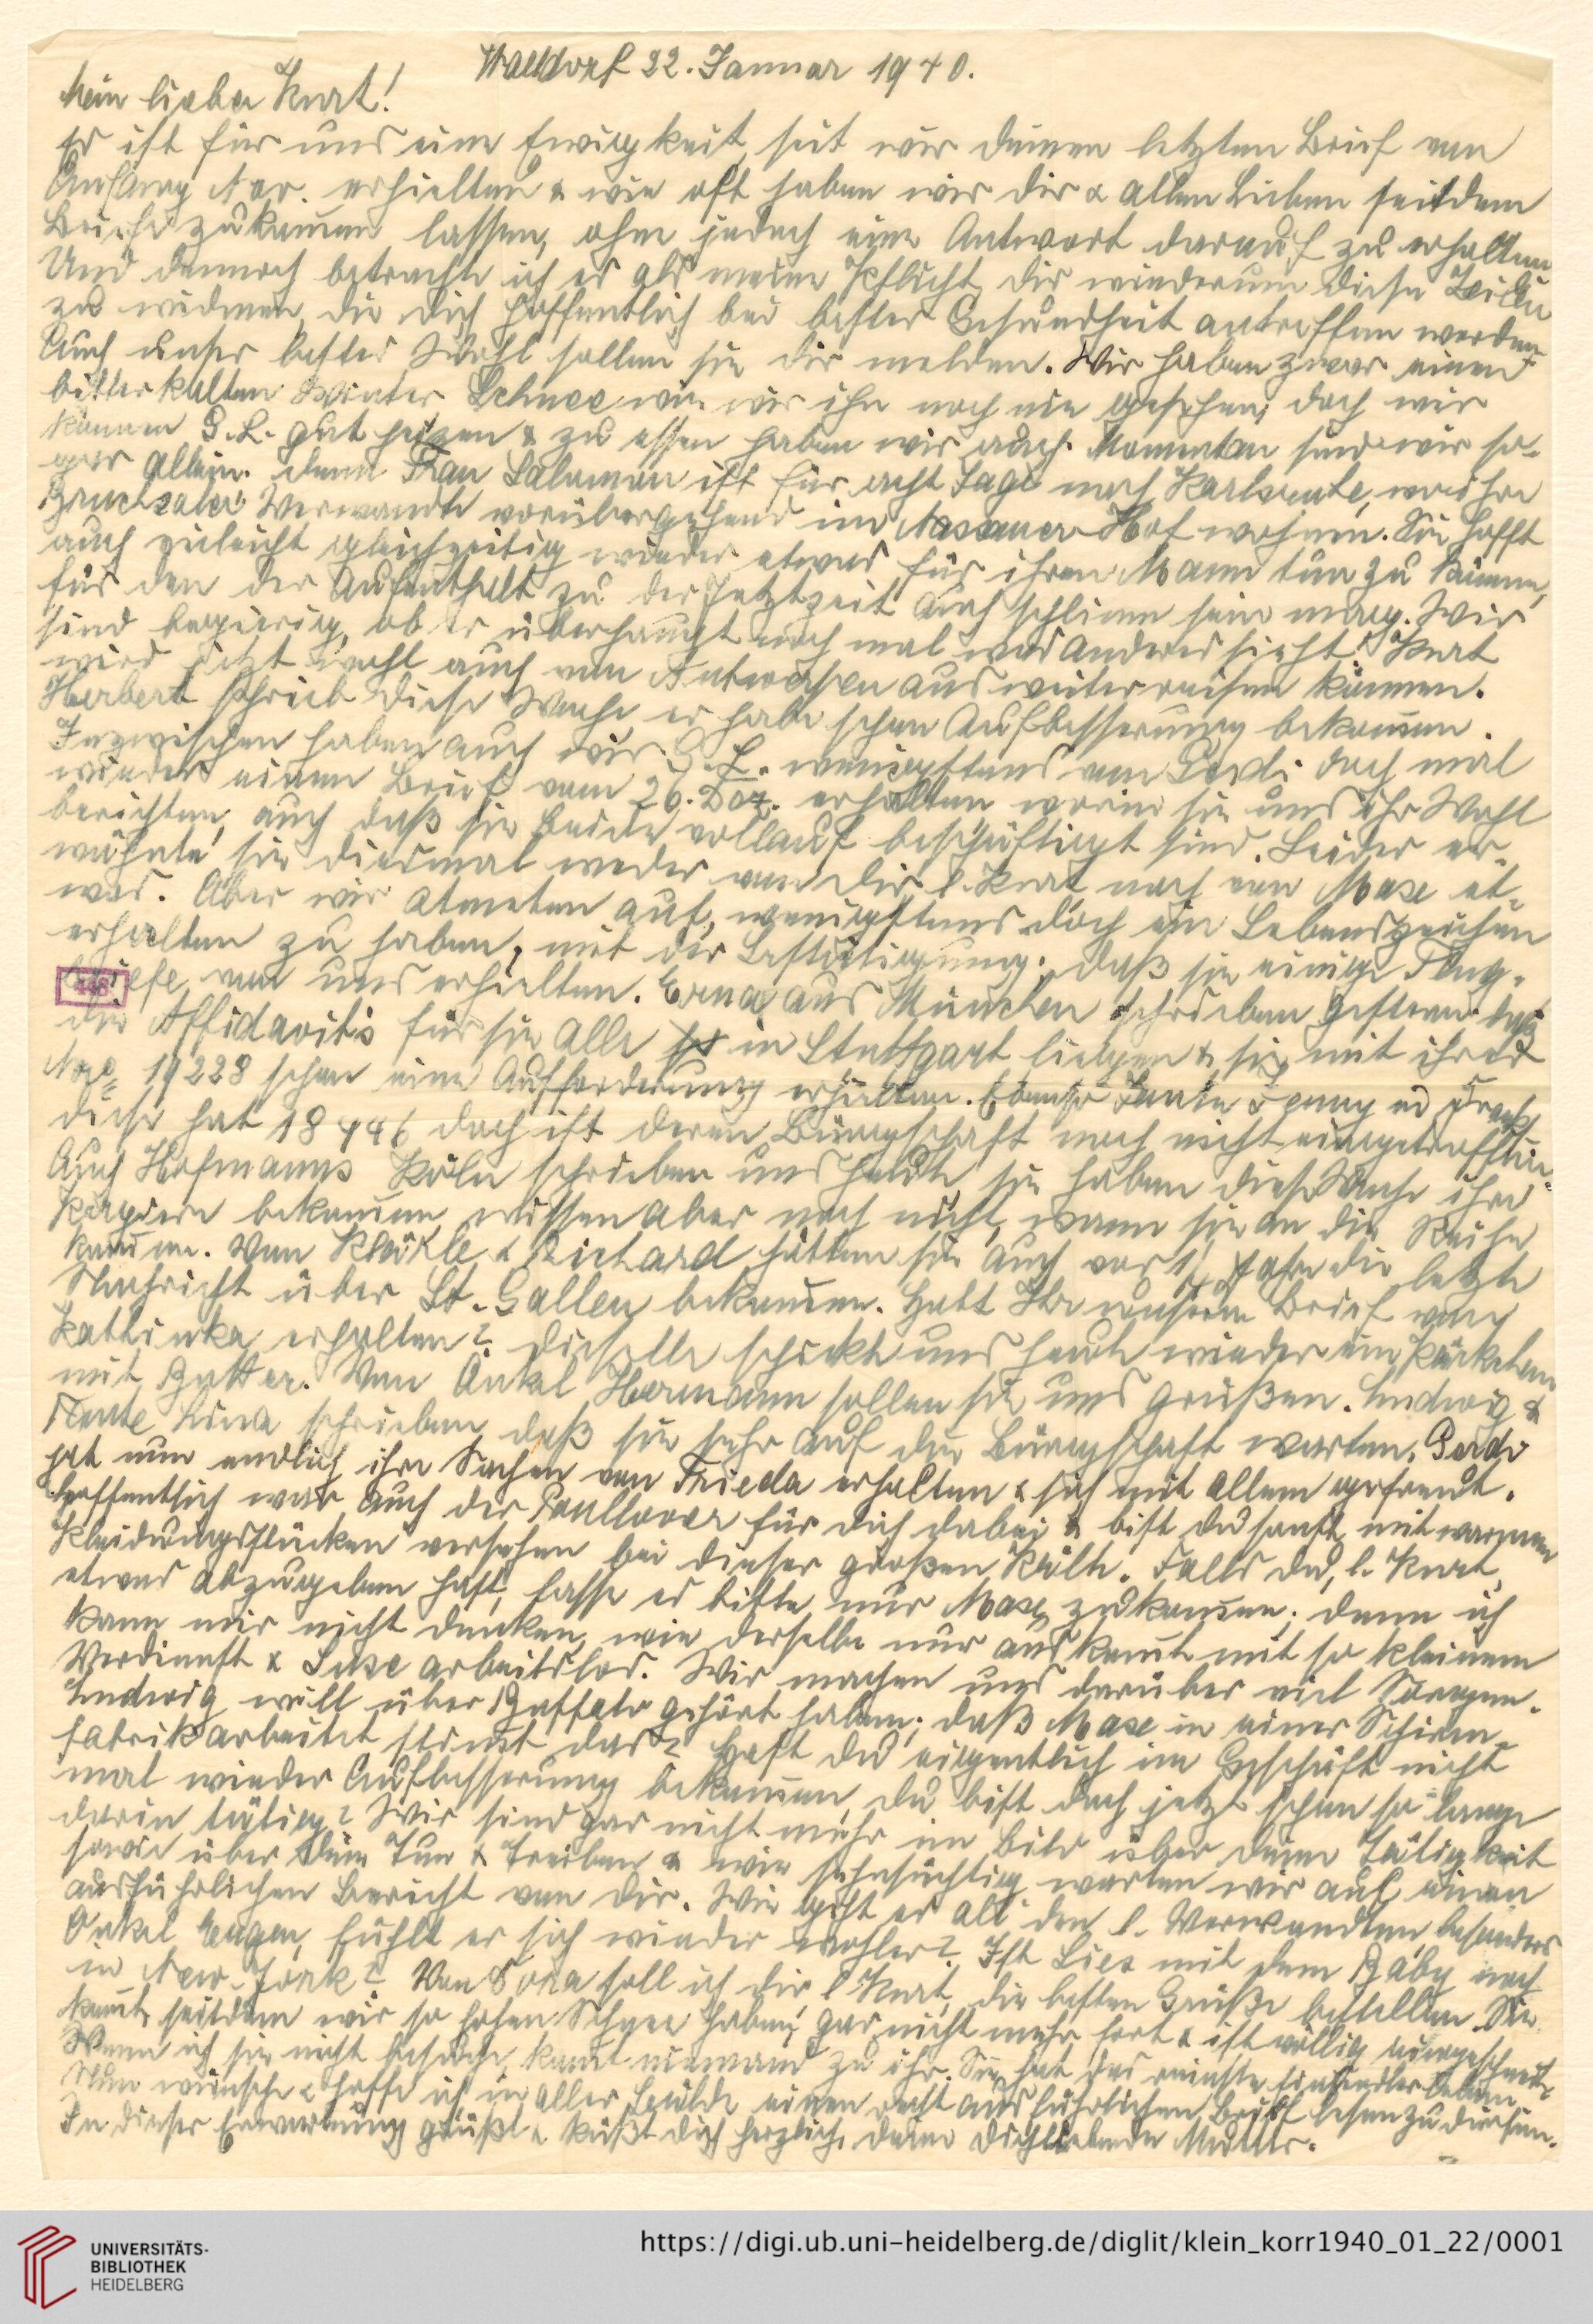 Walldorf 22. Januar 1940.
Mein lieber Kurt!
Es ist für uns eine Ewigkeit, seit wir deinen letzten Brief von
Anfang Nov. erhielten & wie oft haben wir dir & allen Lieben seitdem
Briefe zukommen lassen, ohne jedoch eine Antwort darauf zu erhalten
Und dennoch betrachte ich es als meine Pflicht, dir wiederum diese Zeilen
zu widmen, die dich hoffentlich bei bester Gesundheit antreffen werden
Auch unser bestes Wohl sollen sie dir melden. Wir haben zwar einen
bitterkalten Winter Schnee wie wir ihn noch nie gesehen, doch wir
können G. L. gut heizen & zu essen haben wir auch. Momentan sind wir so-
gar allein. denn Frau Salomon ist für acht Tage nach Karlsruhe, wo ihre
Bruchsaler Verwandte vorübergehend im Nassauer Hof wohnen. Sie hofft
auch vielleicht gleichzeitig wieder etwas für ihren Mann tun zu können,
für den der Aufenthalt zu der Jetztzeit auch schlimm sein mag. Wir
sind begierig, ob er überhaupt noch mal was anderes sieht. Kurt
wird jetzt wohl auch von Antwerpen aus weiterreisen können.
Herbert schrieb diese Woche, er habe schon Aufbesserung bekommen.
Inzwischen haben auch wir G. L. wenigstens von Gerdi doch mal
wieder einen Brief vom 26. Dez. erhalten worin sie uns ihr Wohl
berichten, auch daß sie beide vollauf beschäftigt sind. Leider er-
wähnte sie diesmal weder von dir l. Kurt noch von Maxe et-
was. Aber wir atmeten auf, wenigstens doch ein Lebenszeichen
erhalten zu haben, mit der Bestätigung, daß sie einige Flug-
briefe von uns erhielten. Erna aus München schrieben gestern daß
die Affidavits für sie alle in Stuttgart liegen & sie mit ihrer
Nro 19228 schon eine Aufforderung erhielten. Ebenso Tante Fenny
diese hat 18446 doch ist deren Bürgschaft noch nicht eingetroffen
Auch Hofmanns Köln schrieben uns heute sie haben diese Woche ihre
Papiere bekommen, wissen aber noch nicht, wann sie an die Reihe
kommen. Von & Richard hätten sie auch vor Jahr die letzte
Nachricht über St. Gallen bekommen. Habt Ihr unseren Brief von
Kathinka erhalten? Dieselbe schickte uns heute wieder ein Päckchen
mit Butter. Von Onkel Hermann sollen sie uns grüßen. Ludwig &
Tante Lina schrieben, daß sie sehr auf die Bürgschaft warten. Gerdi
hat nun endlich ihre Sachen von Frieda erhalten & sich mit allem gefreut.
Hoffentlich war auch der Poullover für dich dabei & bist du sonst mit warmen
Kleidungsstücken versehen bei dieser großen Kälte. Falls du, l. Kurt,
etwas abzugeben hast, lasse es bitte nur Maxe zukommen; denn ich
kann mir nicht denken, wie derselbe nur auskommt mit so kleinem
Verdienst & Luise arbeitslos. Wir machen uns darüber viel Sorgen.
Ludwig will über Buffalo gehört haben, daß Maxe in einer Schirm-
fabrik arbeitet stimmt das? Hast du eigentlich im Geschäft nicht
mal wieder Aufbesserung bekommen, du bist doch jetzt schon so lange
darin tätig? Wir sind gar nicht mehr im Bild über deine Tätigkeit
sowie über dein Tun & Treiben & wie sehnsüchtig warten wir auf einen
ausführlichen Bericht von dir. Wie geht es all den l. Verwandten, besonders
Onkel Eugen, fühlt er sich wieder wohler? Ist Lies mit dem Baby noch
in New-York? Von Dora soll ich dir, l. Kurt, die besten Grüße bestellen. Sie
kommt, seitdem wir so hohen Schnee haben, gar nicht mehr fort & ist völlig eingeschneit.
Wenn ich sie nicht besuche, kommt niemand zu ihr. Sie hat das reinste Einsiedlerleben.
Nun wünsche & hoffe ich, in aller Bälde einen recht ausführlichen Brief lesen zu dürfen.
In dieser Erwartung grüßt & küßt dich herzlich, deine dichliebende Mutter.
UNIVERSITÄTS-
BIBLIOTHEK
HEIDELBERG
https://digi.ub.uni-heidelberg.de/diglit/klein_korr1940_01_22/0001